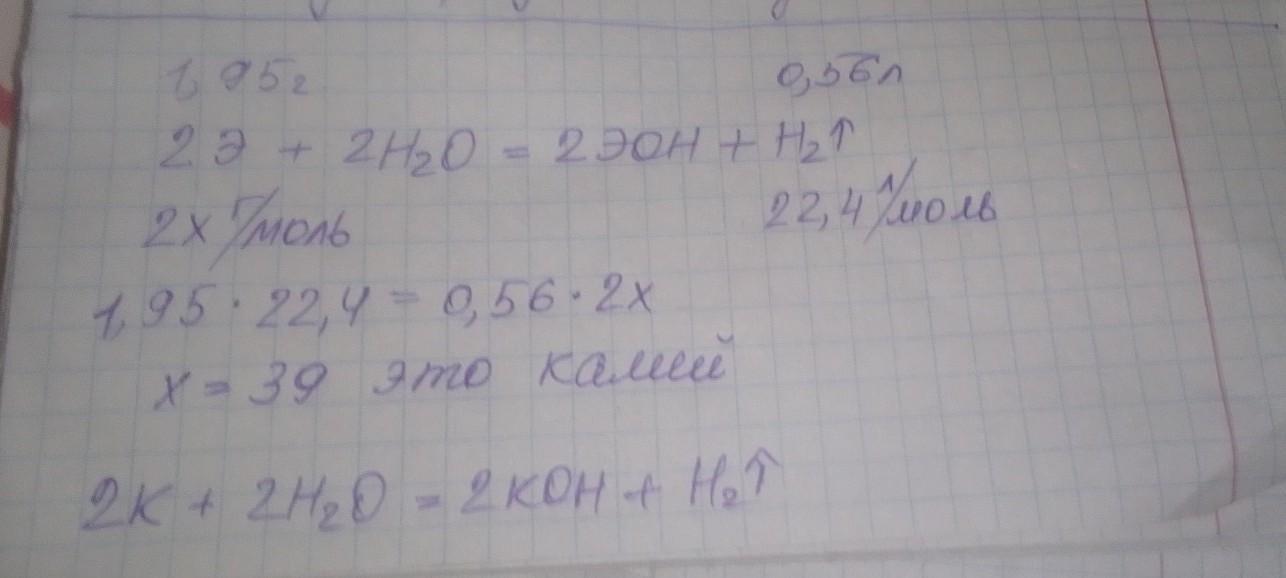 1,95г 0,56л
2Э + 2H₂O = 2ЭOH + H₂↑
2x г/моль 22,4 л/моль
1,95 · 22,4 = 0,56 · 2x
x = 39 это калий
2K + 2H₂O = 2KOH + H₂↑